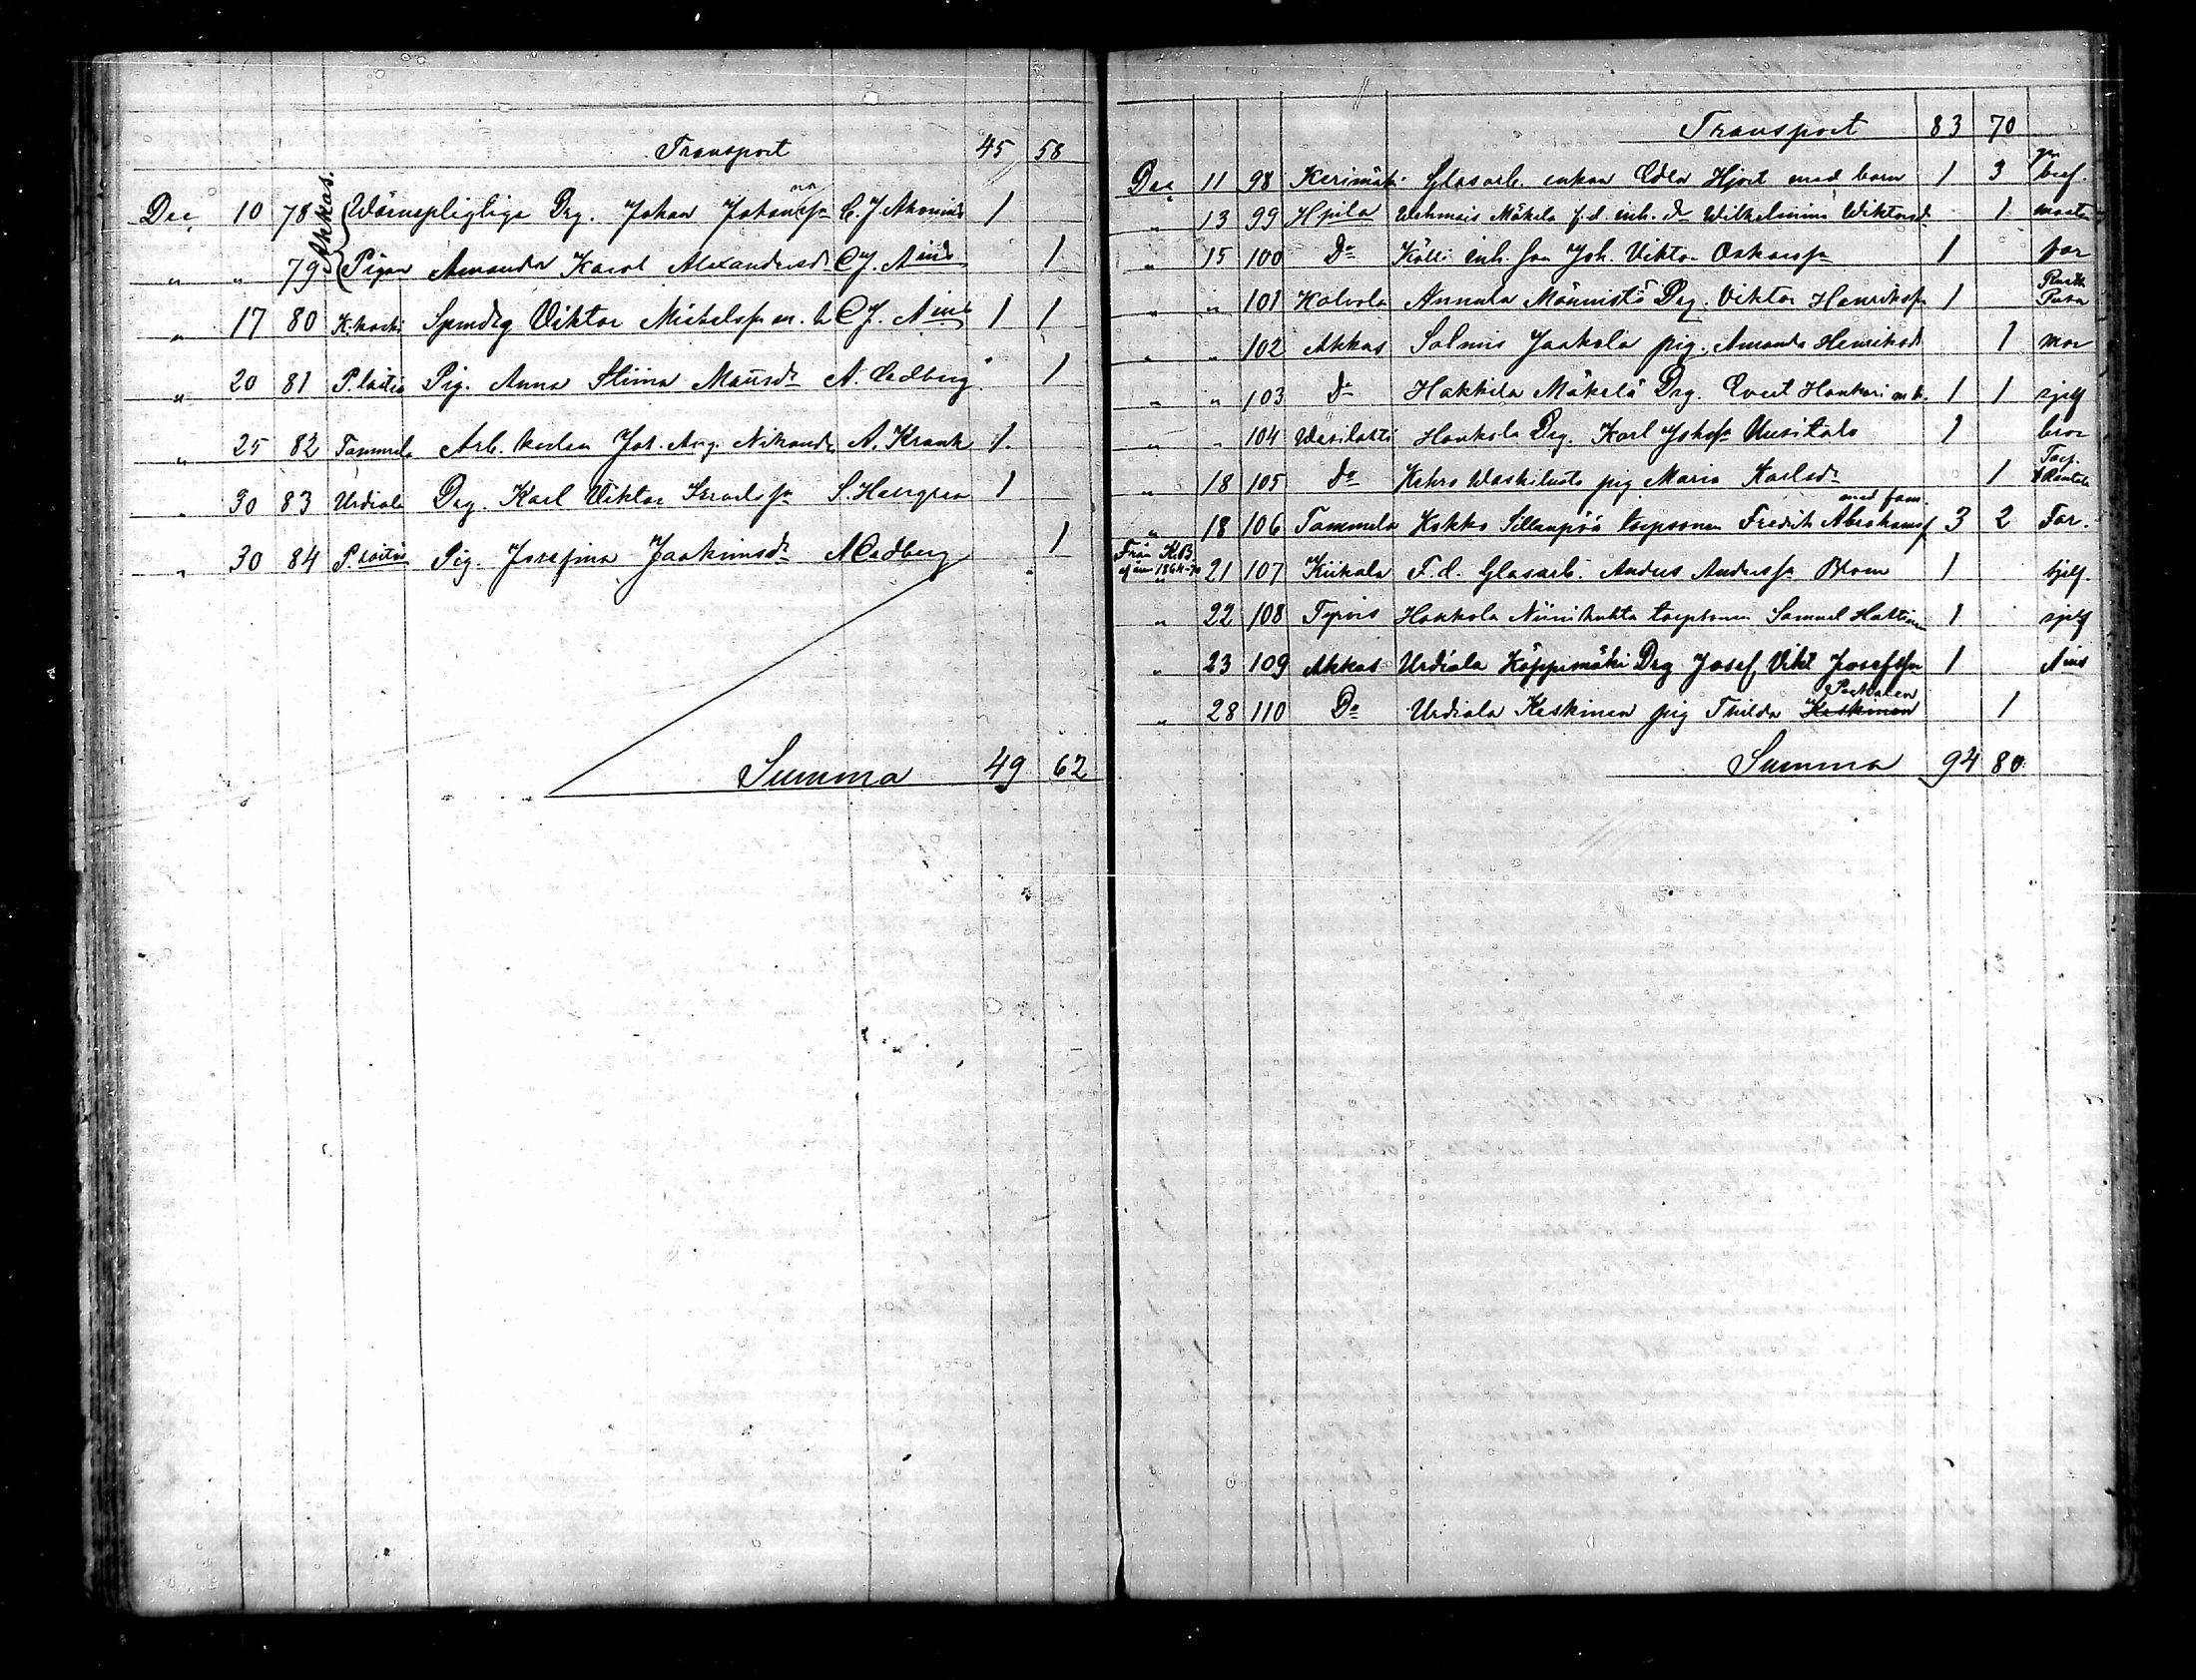 Transport 45 58
Dec. 10 78 Akkas. Wärnepligtige Drg. Johan Johansson C. J. A 1
" " 79 Pigan Amanda Karol. Alexandersdr C. J. A 1
" 17 80 K. koski Spmdrg Viktor Michelss. m. h. C. J. A 1 1
" 20 81 P. laitio Pig. Anna Stiina Mattsdr A. Cedberg. 1
" 25 82 Tammela Arb. karlen Joh. Aug. Nikander A. Krank 1.
" 30 83 Urdiala Drg. Karl Viktor Israelss. S. 1
" 30 84 P. laitio Pig. Josefina Jaakimsdr A Cedberg 1
Summa 49 62
Transport 83 70
Dec 11 98 Kerimäki Glasarb. enkan Edla Hjort med barn 1 3
" 13 99 Hjila Wehmais Mäkelä f. d. inh. dr Wilhelmina Wiktorsd. 1
" 15 100 Do Kölli inh. son Joh. Viktor Oskarss. 1 far
" " 101 Kalvola Annula Männistö Drg. Viktor Henrikss. 1
" " 102 Akkas Salmis Jaakola pig. Amanda Henriksd. 1 mor
" " 103 Do Hakkila Mäkelä Drg. Evert Honkari m. h. 1 1 sjelf
" " 104 Wesilahti Honkola Drg. Karl Johss. Uusitalo 1 bror
" 18 105 Do Kehro Waskiluoto pig Maria Karlsdr 1 Torp. Rantala
med fam.
" 18 106 Tammela Kokko Sillanpää torpsonen Fredrik Abrahamss. 3 2 Far.
Från K.B. af år 1864-70
" 21 107 Kiikala F. d. Glasarb. Anders Anderss. Blom 1 sjelf.
" 22 108 Tyrvis Honkola Niinihuhta torpsonen Samuel 1 sjelf
" 23 109 Akkas Urdiala Köppimäki Drg Josef Vikt Josefsson 1
Pietilainen
" 28 110 Do Urdiala Keskinen pig Thilda Keskinen 1
Summa 94 80